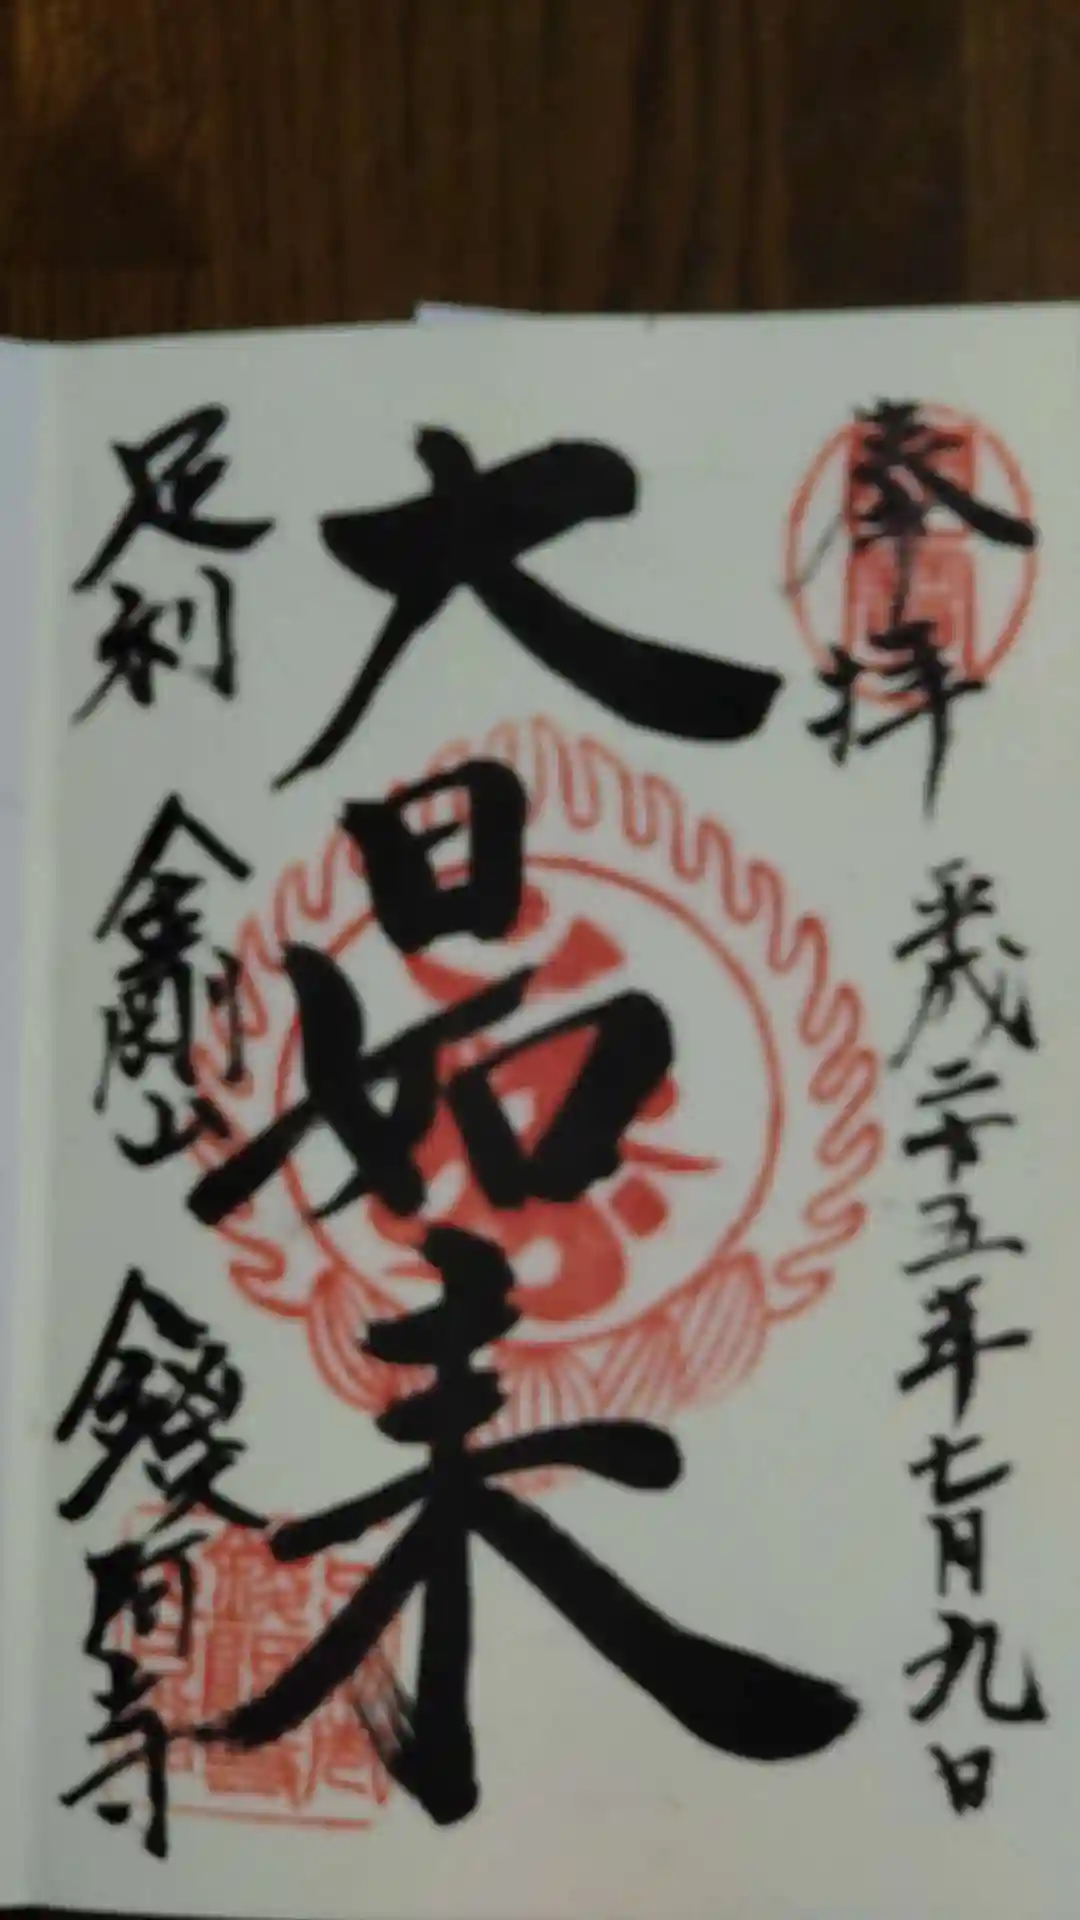 奉拝
平成二十五年七月九日
大日如来
足利 金剛山 鑁阿寺